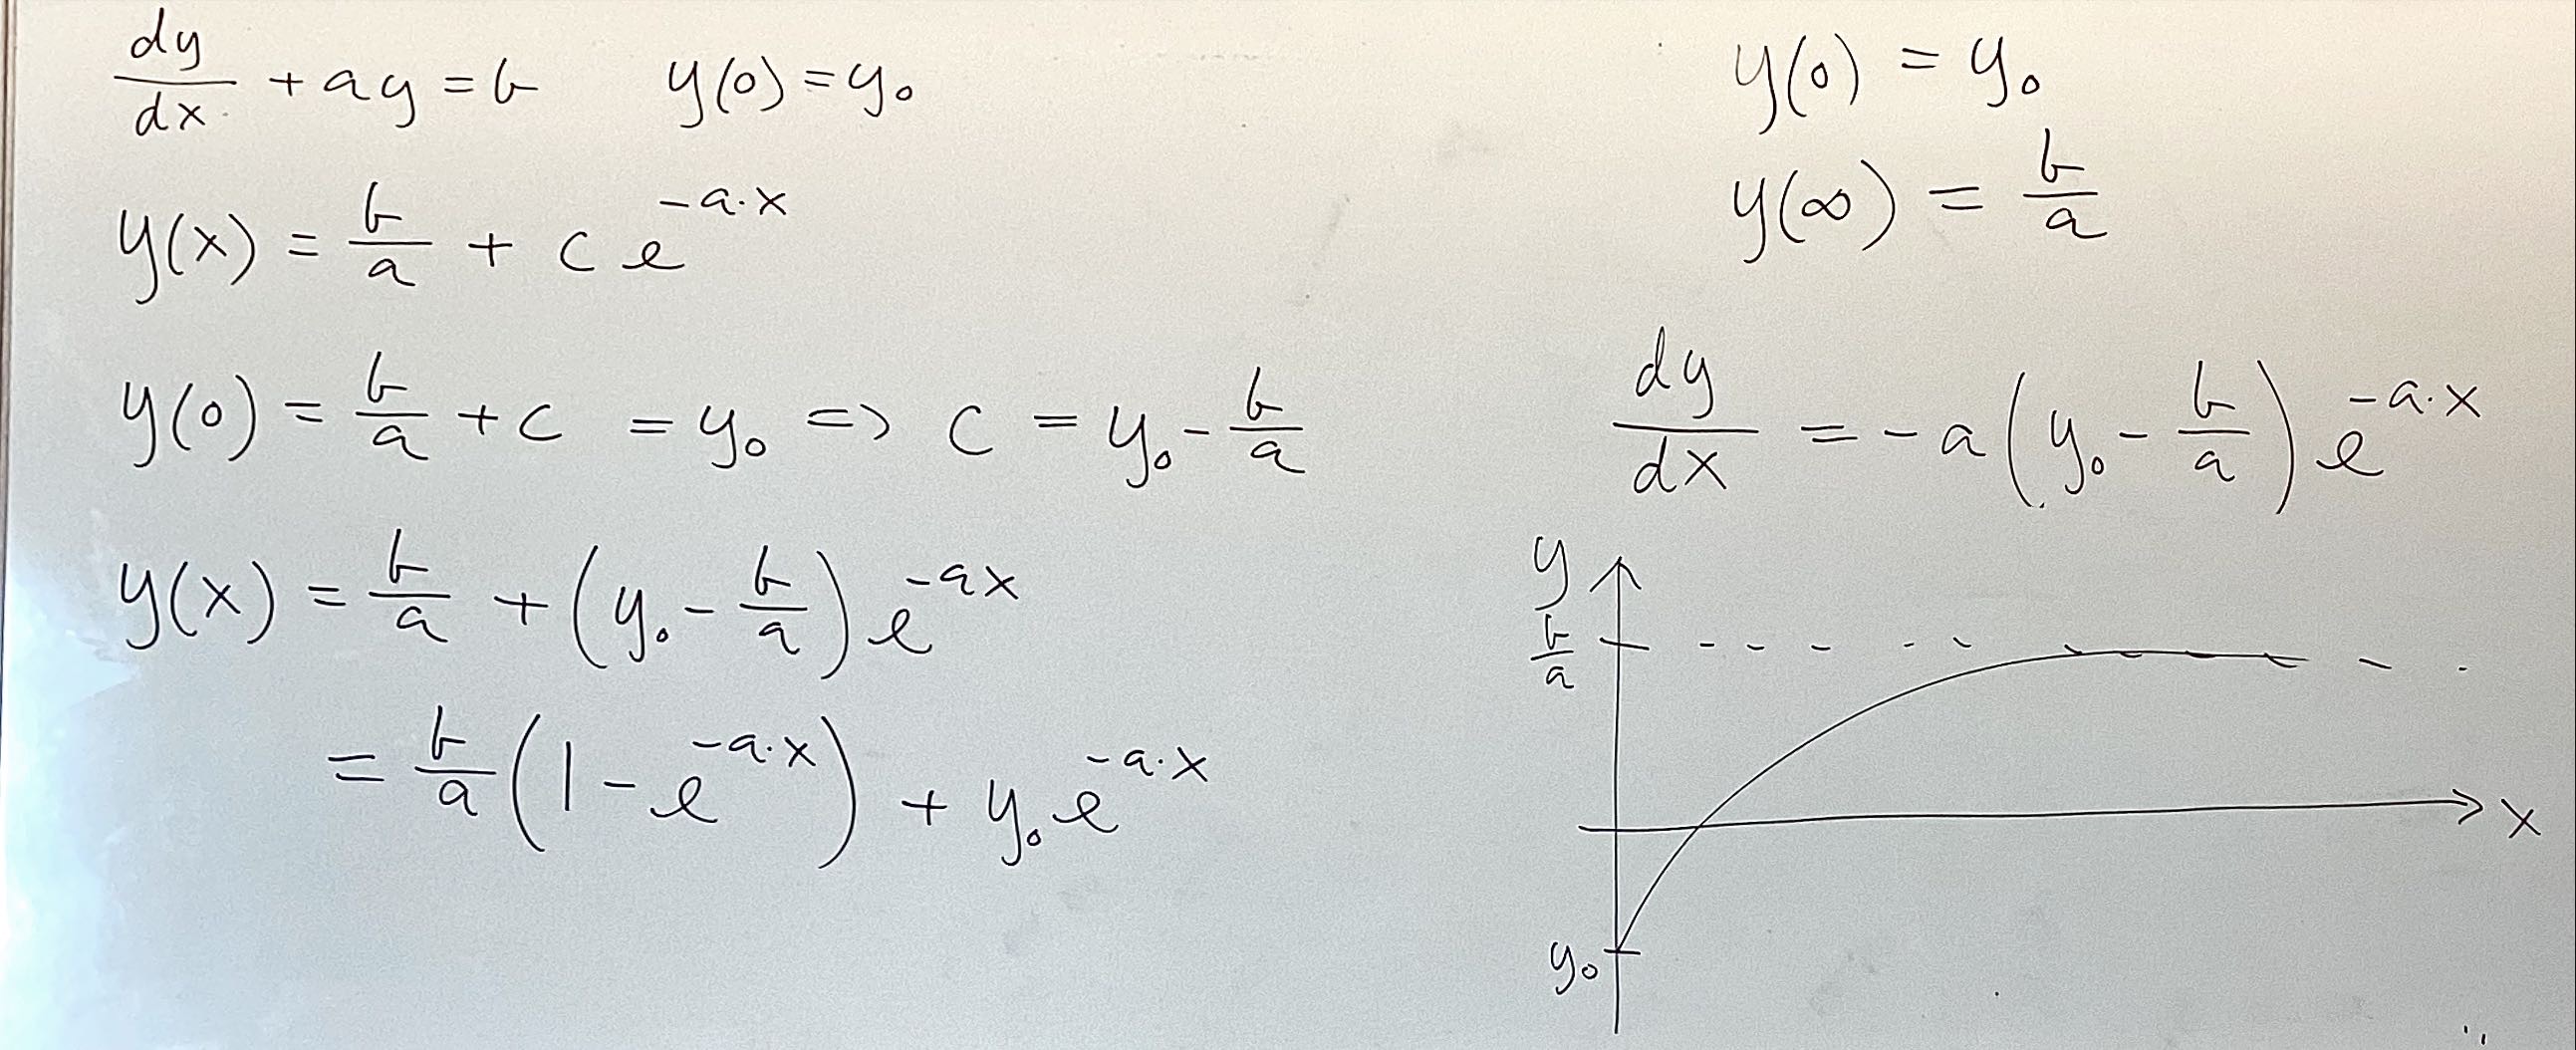 dy/dx + ay = b    y(0) = y₀
y(x) = b/a + c e^(-a·x)
y(0) = b/a + c = y₀ => c = y₀ - b/a
y(x) = b/a + (y₀ - b/a) e^(-ax)
= b/a (1 - e^(-a·x)) + y₀ e^(-a·x)
y(0) = y₀
y(∞) = b/a
dy/dx = -a (y₀ - b/a) e^(-a·x)
y
b/a
x
y₀